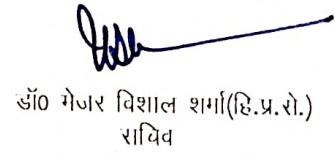 डॉ0 मेजर विशाल शर्मा(हि.प्र.से.)
सचिव